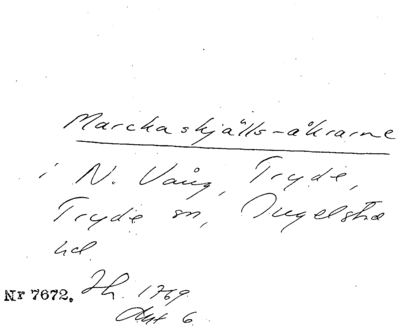 Marckaskjälls-åkrarne
i N. Vång, Tryde,
Tryde sn, Ingelsta
hd.
Nr 7672. Jh. 1769
Akt 6